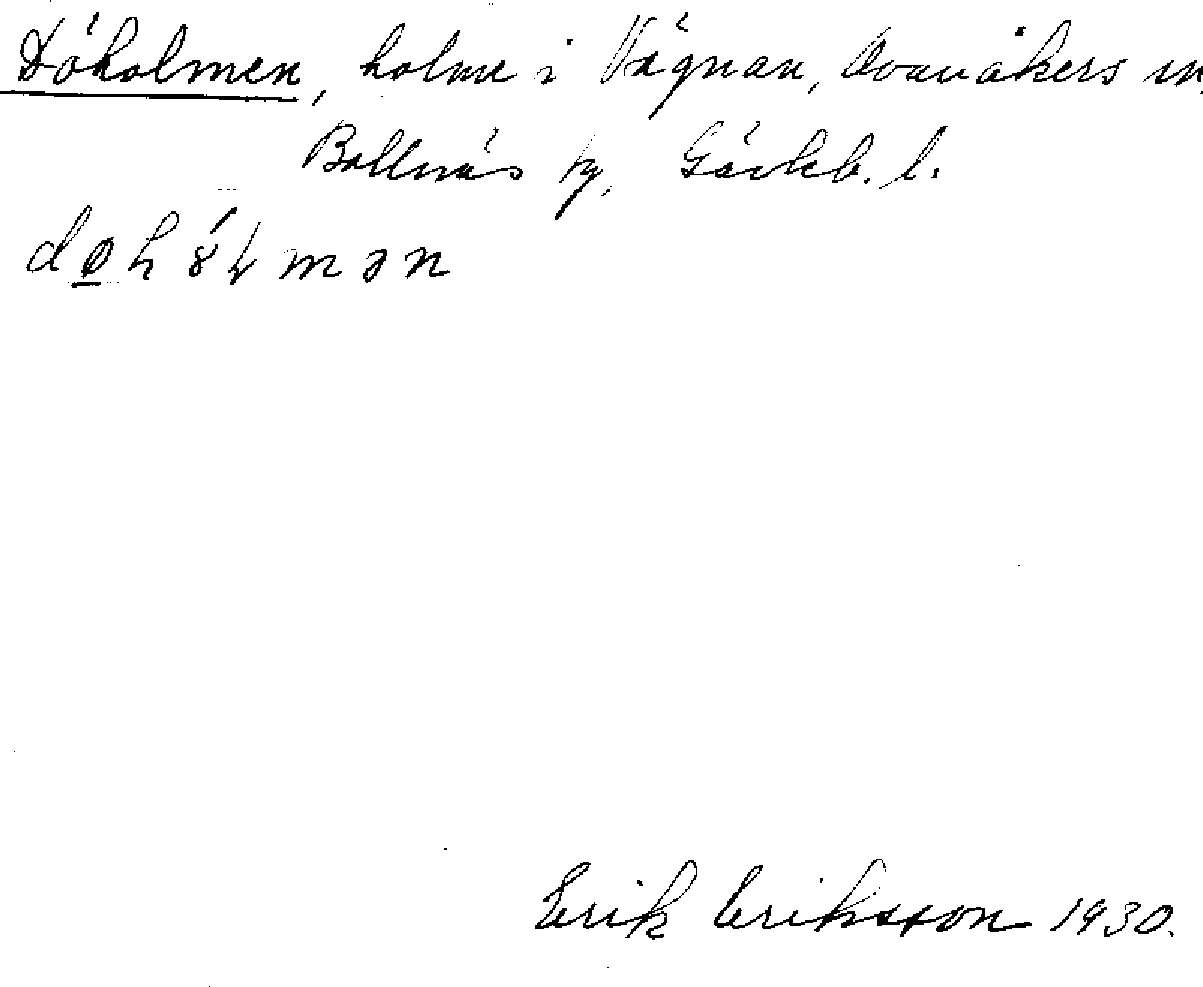 Döholmen, holme i Vågnan, Ovanåkers sn,
Bollnäs ty, Gävleb. l.
Erik Eriksson 1930.